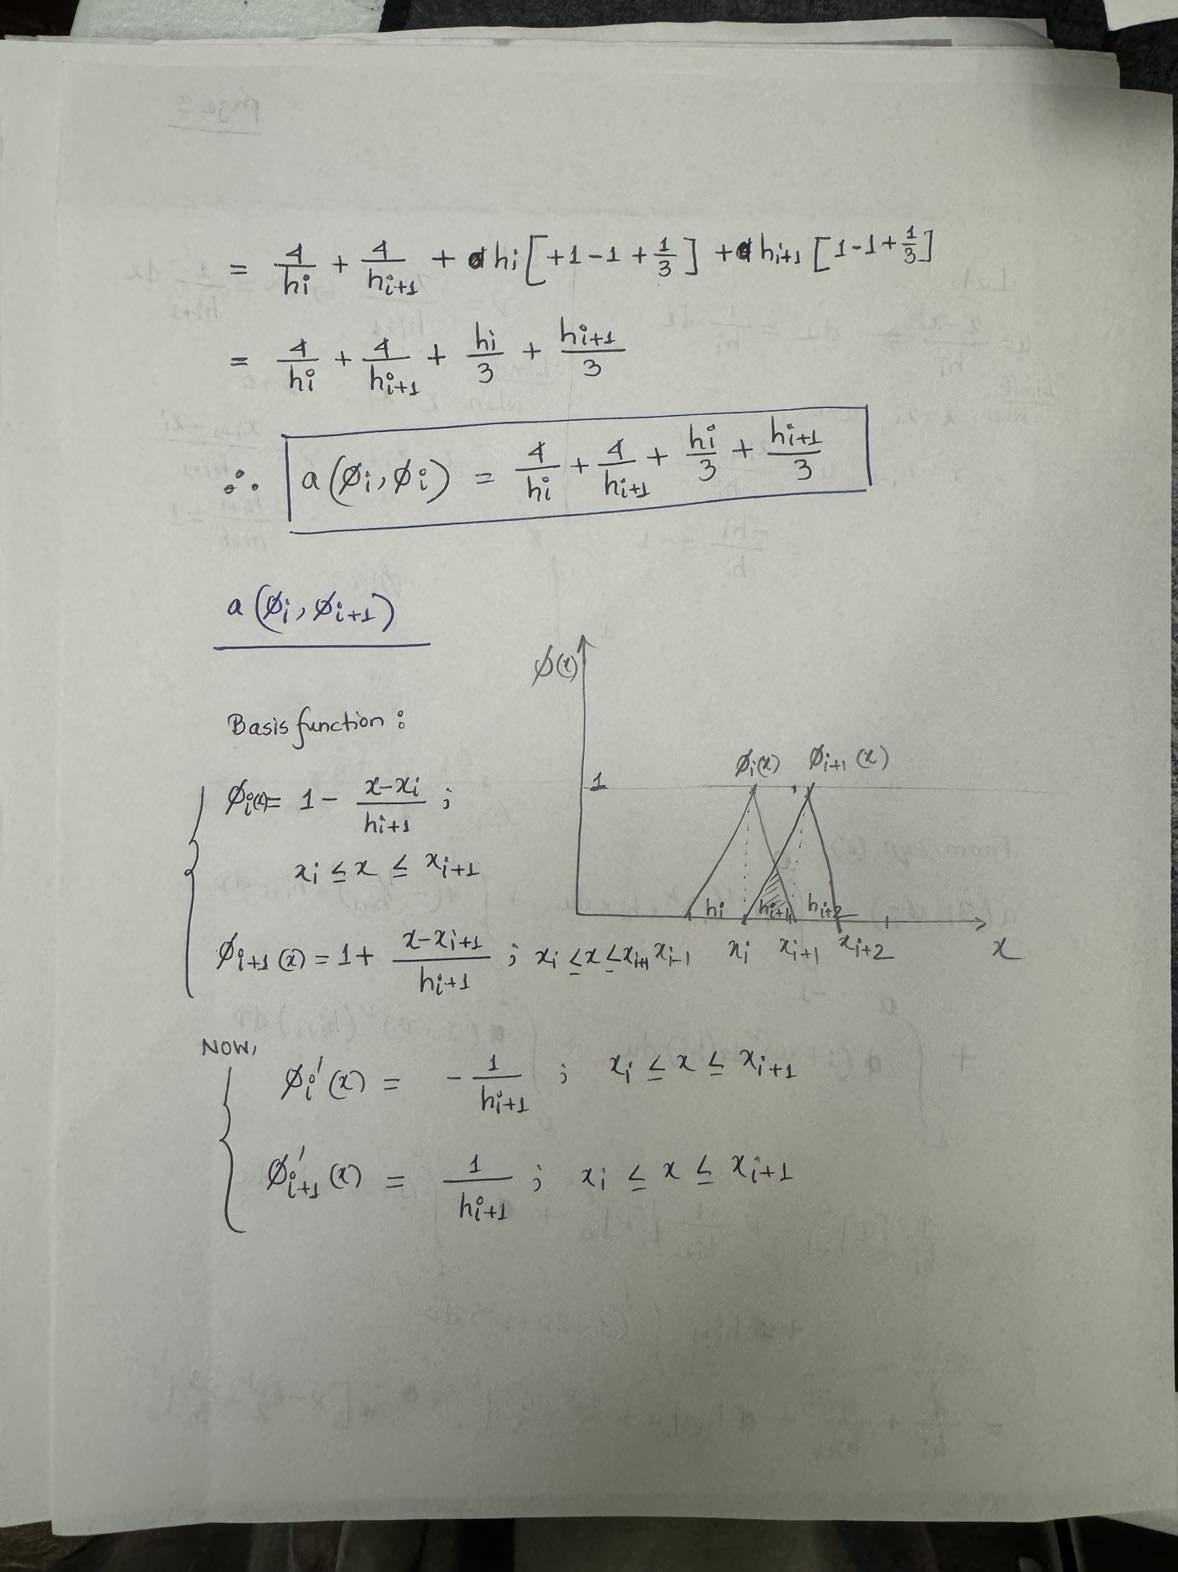 = 4/hi + 4/hi+1 + hi [+1-1+1/3] + hi+1 [1-1+1/3]
= 4/hi + 4/hi+1 + hi/3 + hi+1/3
∴ a(Øi, Øi) = 4/hi + 4/hi+1 + hi/3 + hi+1/3
a(Øi, Øi+1)
Basis function :
Øi(x) = 1 - (x-xi)/hi+1 ;
xi ≤ x ≤ xi+1
Øi+1(x) = 1 + (x-xi+1)/hi+1 ; xi ≤ x ≤ xi+1
Ø(x)
1
Øi(x) Øi+1(x)
hi hi+1 hi+2
xi-1 xi xi+1 xi+2 x
Now,
Øi'(x) = - 1/hi+1 ; xi ≤ x ≤ xi+1
Øi+1'(x) = 1/hi+1 ; xi ≤ x ≤ xi+1